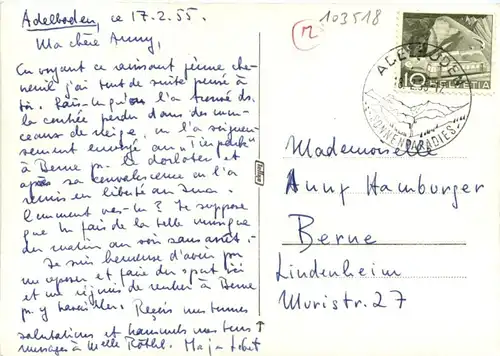 Adelboden, ce 17.2.55.
Ma chère Anny,
En voyant ce ravissant jeune che-
vreuil j'ai tout de suite pensé à
toi. Sais-tu qu'on l'a trouvé ds.
la contrée perdu dans des mon-
ceaux de neige, on l'a soigneu-
sement envoyé au "Tierpark"
à Berne pr. le dorloter et
après sa convalescence on l'a
remis en liberté au
Comment vas-tu? Je suppose
que tu fais de la belle musique
du matin au soir sans arrêt.-
Je suis heureuse d'avoir pu
me reposer et faire du sport ici
et me réjouis de rentrer à Berne
pr. y travailler. Reçois mes bonnes
salutations et transmets mes bons
messages à Melle Röthl. Maja
103518
M
ADELBODEN
SONNENPARADIES
10
HELVETIA
Mademoiselle
Anny Hamburger
Berne
Lindenheim
Muristr. 27